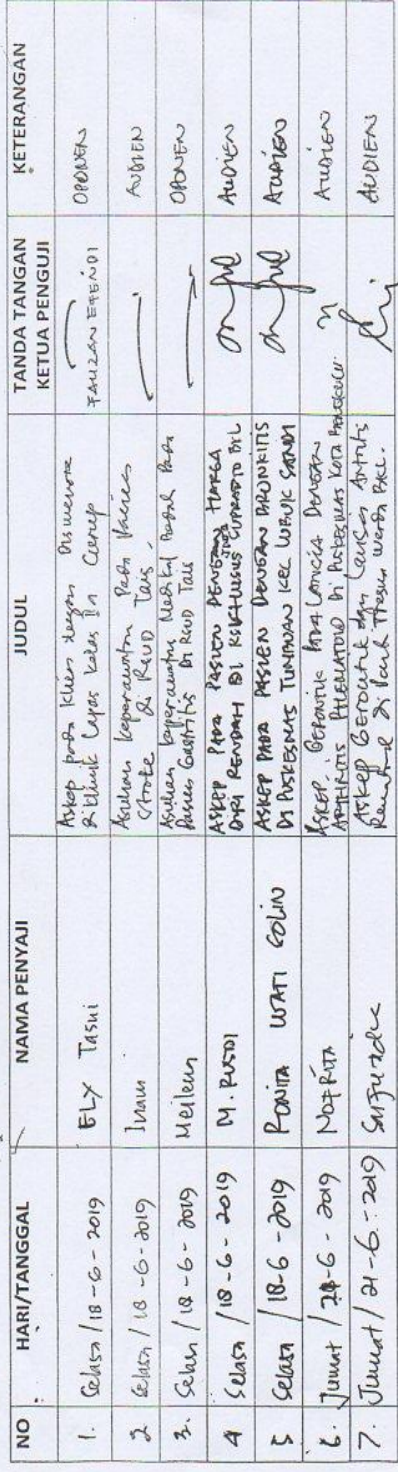 NO HARI/TANGGAL NAMA PENYAJI JUDUL TANDA TANGAN KETUA PENGUJI KETERANGAN
1. Selasa / 18 - 6 - 2019 ELX Tasni Askep pada klien dengan Dismenore
di klinik Lapas kelas II A Curup FAUZAN EFENDI OPONEN
2 Selasa / 18 - 6 - 2019 Imam Asuhan keperawatan Pada Pasien
Stroke di RSUD Tais. AUDIEN
3. Selasa / 18 - 6 - 2019 Meileni Asuhan keperawatan Medikal Bedah Pada
Pasien Gastritis Di RSUD Tais OPONEN
4 Selasa / 18 - 6 - 2019 M. RUSDI ASKEP PADA PASIEN DENGAN HARGA
DIRI RENDAH DI RSKJ KHUSUS JIWA SUPRAPTO BKL AUDIEN
5 Selasa / 18-6 - 2019 RONITA WATI GOLIN ASKEP PADA PASIEN DENGAN BRONKITIS
DI PUSKESMAS TUMBUAN KEC LUBUK SANDI AUDIEN
6. Jumat / 21-6 - 2019 NOFRITA ASKEP. GERONTIK PADA LANSIA DENGAN
ARTHRITIS RHEMATOID DI PUSKESMAS KOTA BENGKULU. AUDIEN
7. Jumat / 21-6 - 2019 ASKEP Gerontik dgn Lansia Artritis
Reumatoid di Panti Tresna Werda BKL. AUDIEN